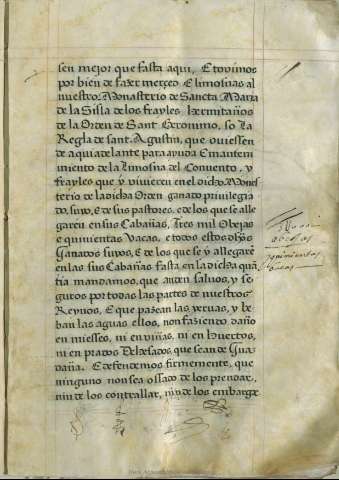 sen mejor que fasta aqui, E tovimos
por bien de fazer merçed E limosnas al
nuestro Monasterio de Sancta Maria
de la Sisla de los frayles Hermitaños
de la Orden de Sant Geronimo, so La
Regla de sant Agustin, que oviessen
de aqui adelante para ayuda E manteni
miento de la Limosna del Convento, y
frayles que y vivieren en el dicho Mones
terio de la dicha Orden ganado privilegia
do, suyo, e de sus pastores, e de los que se alle
garen en sus Cabañas, Tres mil Obejas
e quinientas Vacas, e todos estos dhos
Ganados suyos, E de los que se y allegarē
en las sus Cabañas fasta en la dicha quā
tia mandamos, que anden salvos, y se
guros por todas las partes de nuestros
Reynos, E que pascan las yervas, y be
ban las aguas ellos, non faziendo daño
en miesses, ni en viñas, ni en Huertos,
ni en prados Dehesados que sean de Gua
daña. E defendemos firmemente, que
ninguno non sea ossado de los prendar,
nin de los contrallar, nin de los embargar
obejas
quinientas
bacas